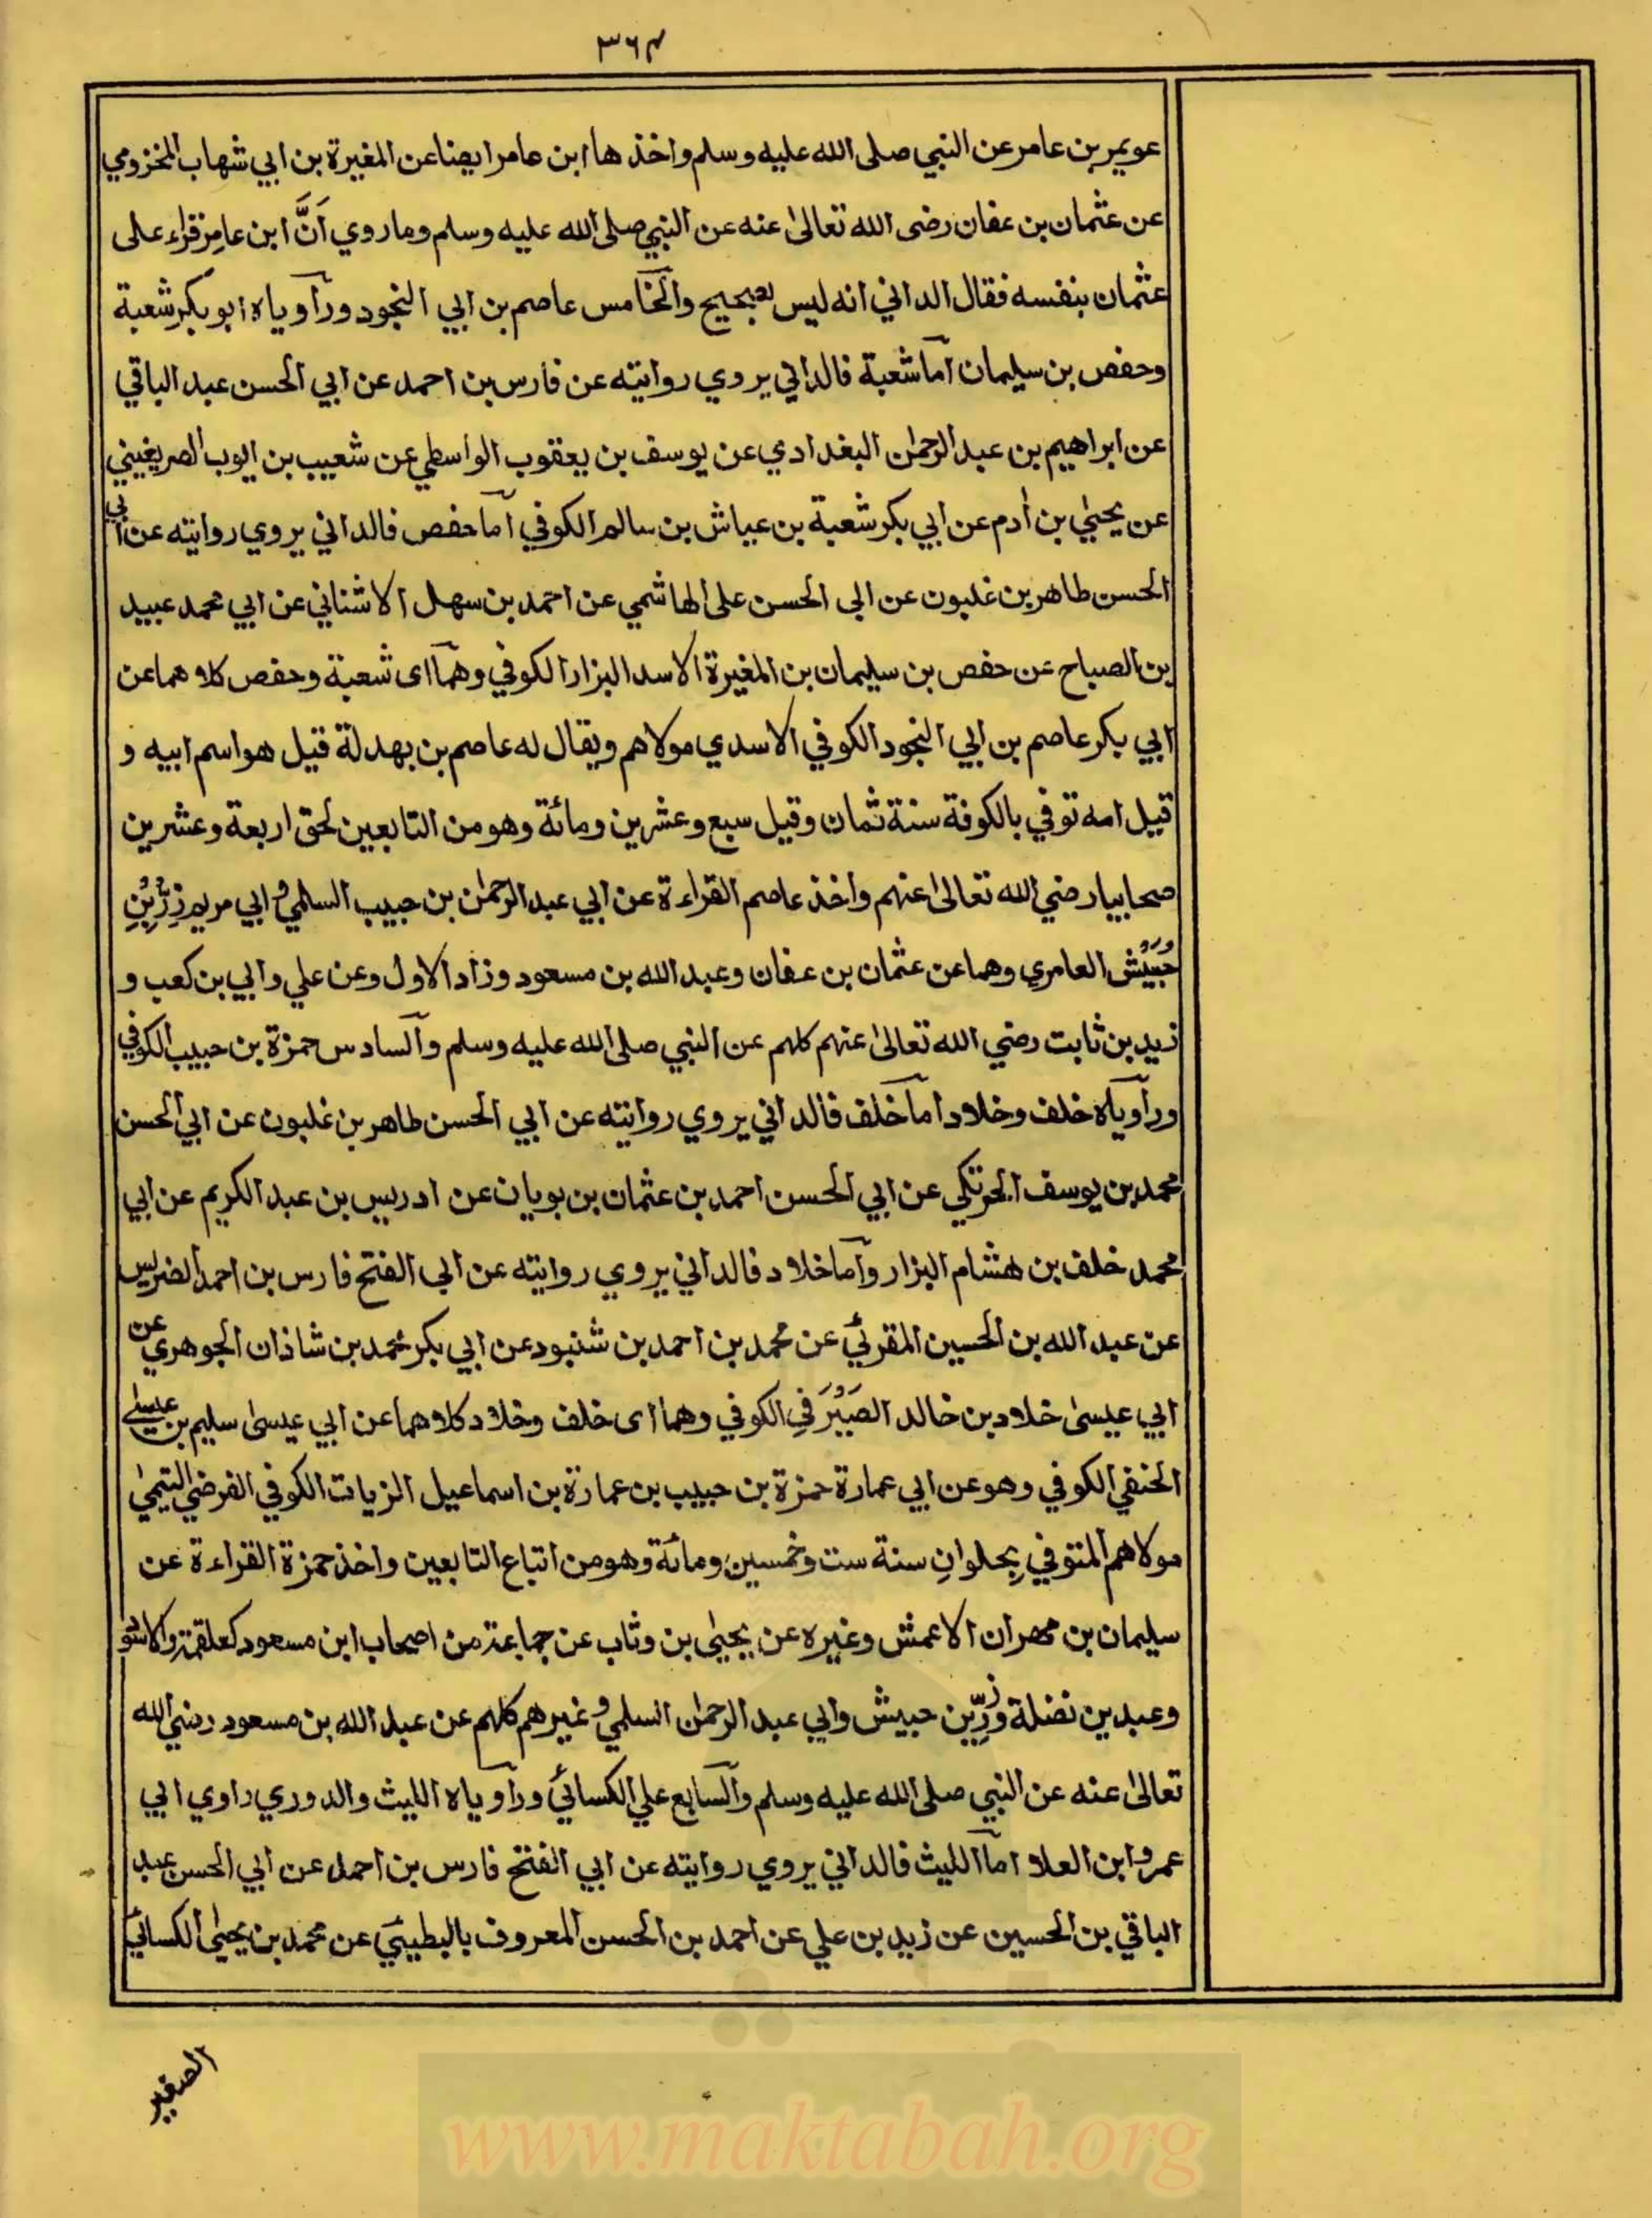 ٣٦٤
عويمر بن عامر عن النبي صلى الله عليه وسلم واخذ ها ابن عامر ايضا عن المغيرة بن ابي شهاب المخزومي
عن عثمان بن عفان رضى الله تعالىٰ عنه عن النبي صلى الله عليه وسلم وما روي اَنَّ ابن عامر قراء على
عثمان بنفسه فقال الداني انه ليس بصحيح والخامس عاصم بن ابي النجود وراوياه ابو بكر شعبة
وحفص بن سليمان اما شعبة فالداني يروي روايته عن فارس بن احمد عن ابي الحسن عبد الباقي
عن ابراهيم بن عبد الرحمٰن البغدادي عن يوسف بن يعقوب الواسطي عن شعيب بن ايوب الصريفيني
عن يحيىٰ بن اٰدم عن ابي بكر شعبة بن عياش بن سالم الكوفي اما حفص فالداني يروي روايته عن ابي
الحسن طاهر بن غلبون عن ابى الحسن على الهاشمي عن احمد بن سهل الاشناني عن ابي محمد عبيد
بن الصباح عن حفص بن سليمان بن المغيرة الاسد البزار الكوفي وهما اى شعبة وحفص كلاهما عن
ابي بكر عاصم بن ابي النجود الكوفي الاسدي مولاهم ويقال له عاصم بن بهدلة قيل هو اسم ابيه و
قيل امه توفي بالكوفة سنة ثمان وقيل سبع وعشرين ومائة وهو من التابعين لحق اربعة وعشرين
صحابيا رضي الله تعالىٰ عنهم واخذ عاصم القراءة عن ابي عبد الرحمٰن بن حبيب السلمي و ابي مريم زِرِّ بْنِ
حُبَيْش العامري وهما عن عثمان بن عفان وعبد الله بن مسعود وزاد الاول وعن علي وابي بن كعب و
زيد بن ثابت رضي الله تعالىٰ عنهم كلهم عن النبي صلى الله عليه وسلم والسادس حمزة بن حبيب الكوفي
وراوياه خلف وخلاد اما خلف فالداني يروي روايته عن ابي الحسن طاهر بن غلبون عن ابي الحسن
محمد بن يوسف الحرتكي عن ابي الحسن احمد بن عثمان بن بويان عن ادريس بن عبد الكريم عن ابي
محمد خلف بن هشام البزار واما خلاد فالداني يروي روايته عن ابى الفتح فارس بن احمد الضرير
عن عبد الله بن الحسين المقرئي عن محمد بن احمد بن شنبود عن ابي بكر محمد بن شاذان الجوهري عن
ابي عيسىٰ خلاد بن خالد الصَيْرَفِي الكوفي وهما اى خلف وخلاد كلاهما عن ابي عيسىٰ سليم بن عيسىٰ
الحنفي الكوفي وهو عن ابي عمارة حمزة بن حبيب بن عمارة بن اسماعيل الزيات الكوفي الفرضي التيمي
مولاهم المتوفي بِحلوانِ سنة ست وخمسين ومائة وهو من اتباع التابعين واخذ حمزة القراءة عن
سليمان بن مهران الاعمش وغيره عن يحيىٰ بن وثاب عن جماعة من اصحاب ابن مسعود كعلقمة والاسود
وعبد بن نضلة وزِرِّ بن حبيش وابي عبد الرحمٰن السلمي و غيرهم كلهم عن عبد الله بن مسعود رضي الله
تعالىٰ عنه عن النبي صلى الله عليه وسلم والسابع علي الكسائي وراوياه الليث والدوري راوي ابي
عمرو ابن العلاء اما الليث فالداني يروي روايته عن ابي الفتح فارس بن احمد عن ابي الحسن عبد
الباقي بن الحسين عن زيد بن علي عن احمد بن الحسن المعروف بالبطيي عن محمد بن يحيىٰ الكسائي
الصغير
www.maktabah.org